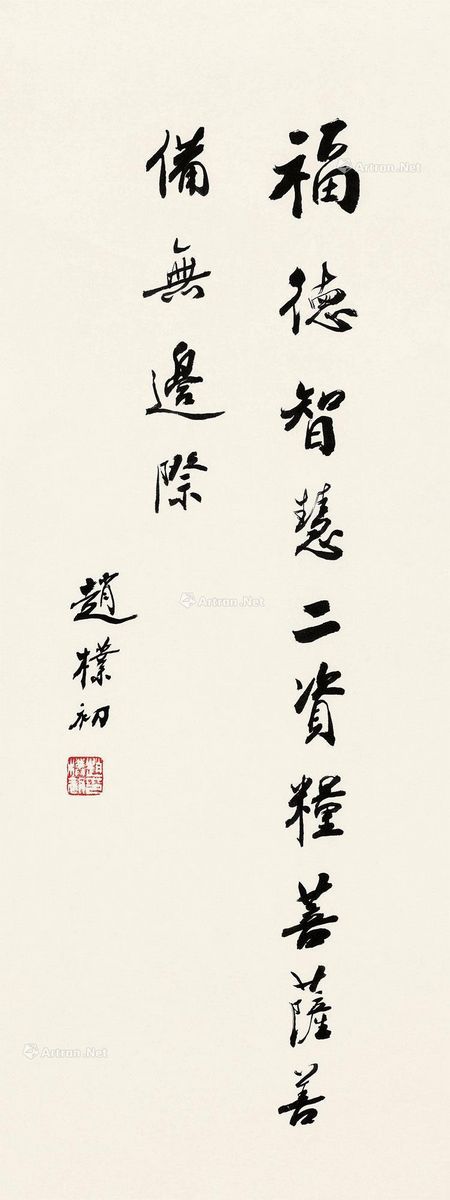 福德智慧二資糧菩薩善
備無邊際
趙樸初
Artron.Net
Artron.Net
Artron.Net